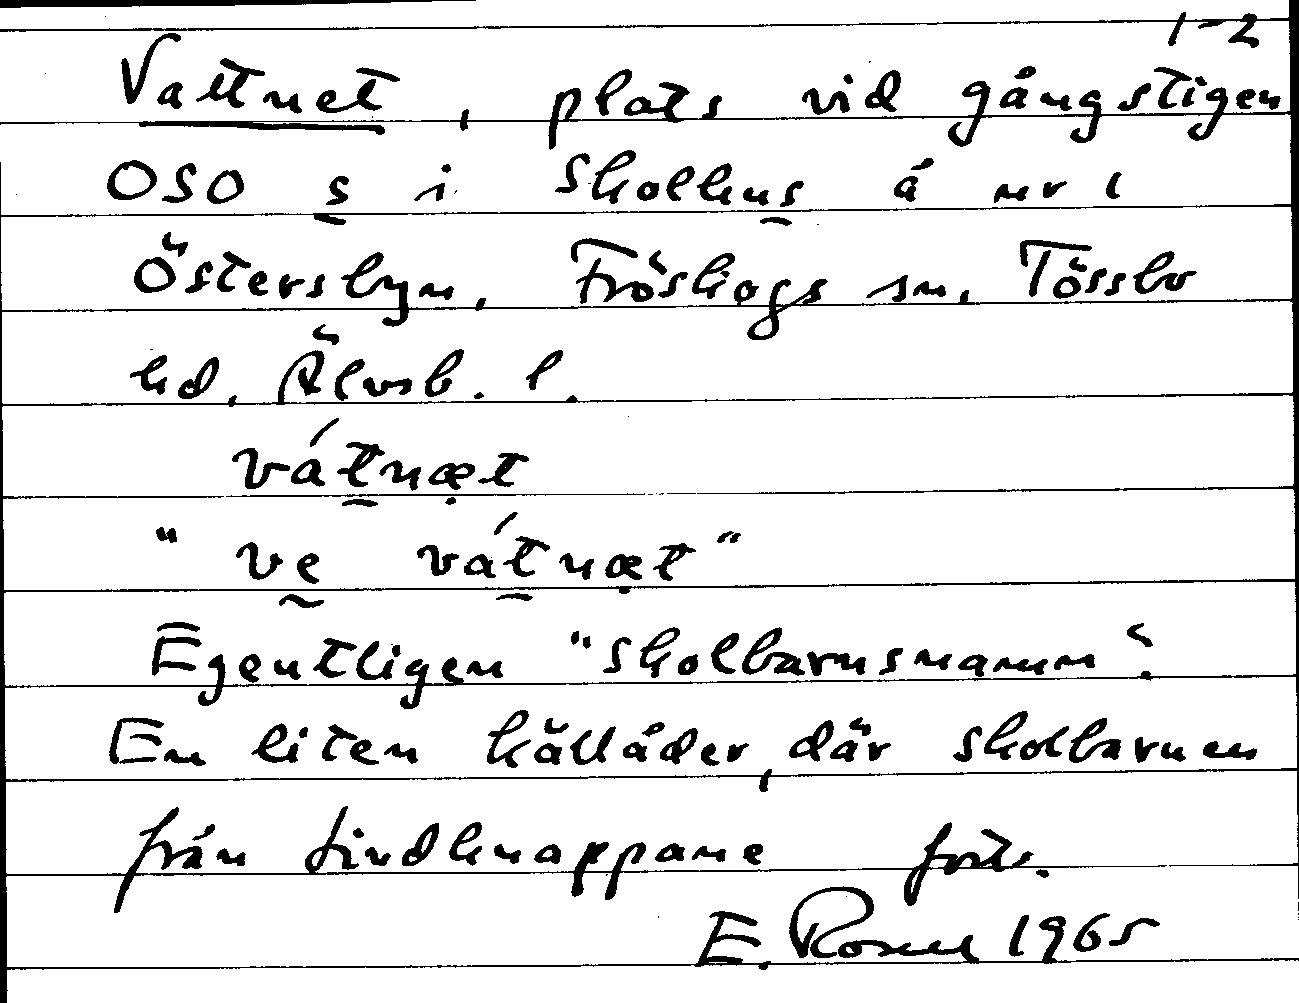 1-2
Vattnet, plats vid gångstigen
OSO s i Skolhus å nr 1
Östersbyn, Fröskogs sn, Tössbo
hd, Älvsb. l.
vátnæt
"ve vátnæt"
Egentligen "skolbarnsnamn".
En liten källåder, där skolbarnen
från Lindknappane forts.
E. Rosell 1965